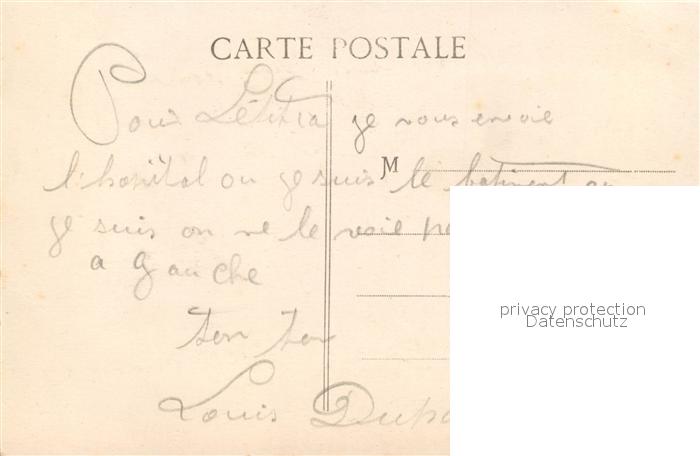 CARTE POSTALE
Pour Létitia je vous envoie
M
l'hopital ou je suis le batiment ou
je suis on ne le voie
a gauche
ton
Louis
privacy protection
Datenschutz